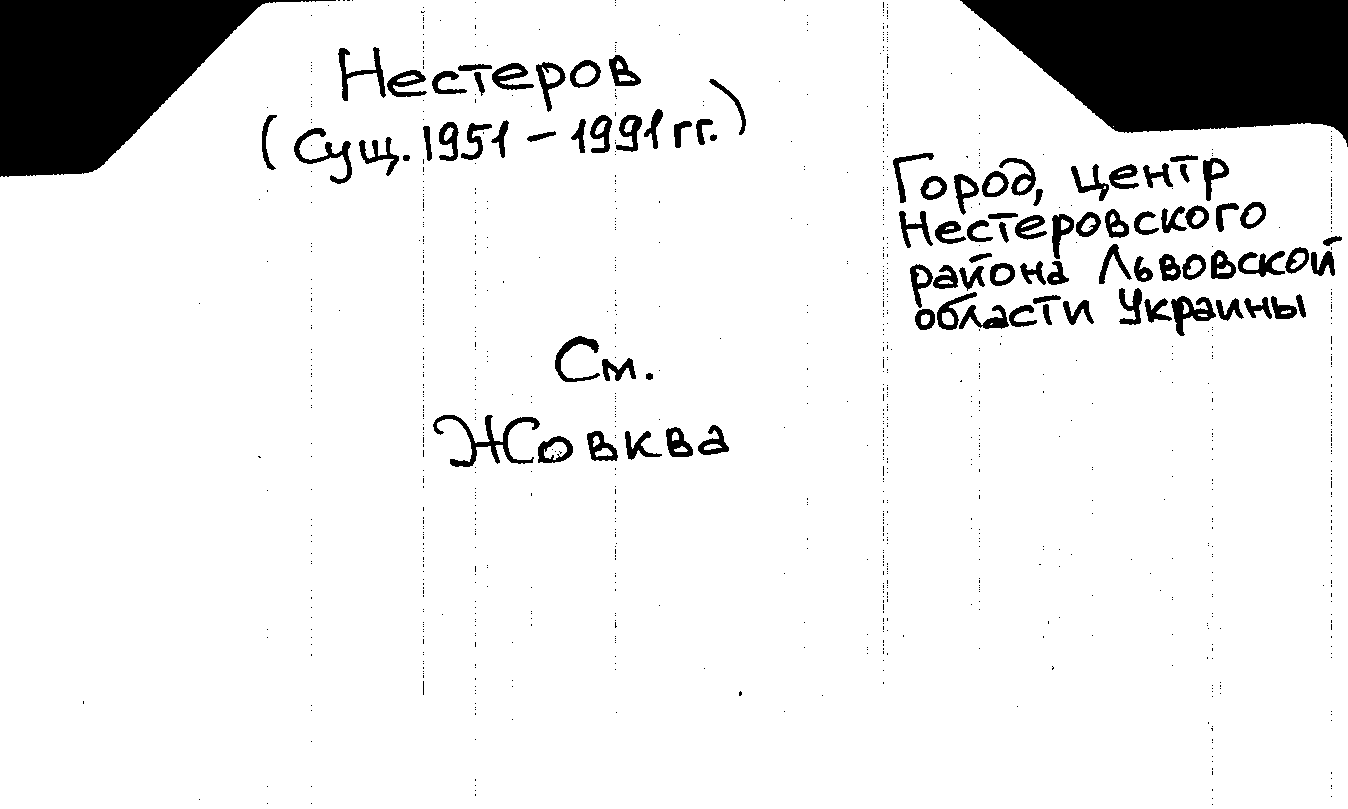 Нестеров
(Сущ. 1951 – 1991 гг.)
Город, центр
Нестеровского
района Львовской
области Украины
См.
Жовква